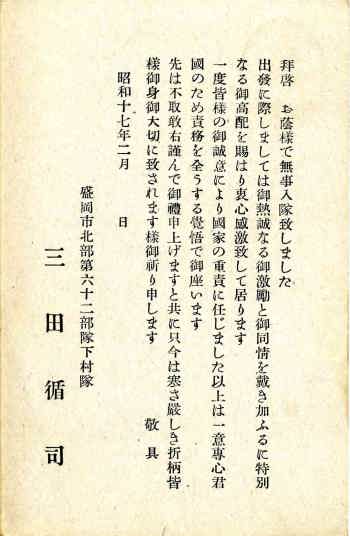 拜啓　お蔭樣で無事入隊致しました
出發に際しましては御熱誠なる御激勵と御同情を戴き加ふるに特別
なる御高配を賜はり衷心感激致して居ります
一度皆樣の御誠意により國家の重責に任じました以上は一意專心君
國のため責務を全うする覺悟で御座います
先は不取敢右謹んで御禮申上げますと共に只今は寒さ嚴しき折柄皆
樣御身御大切に致されます樣御祈り申します　敬具
昭和十七年二月　日
盛岡市北部第六十二部隊下村隊
三田循司